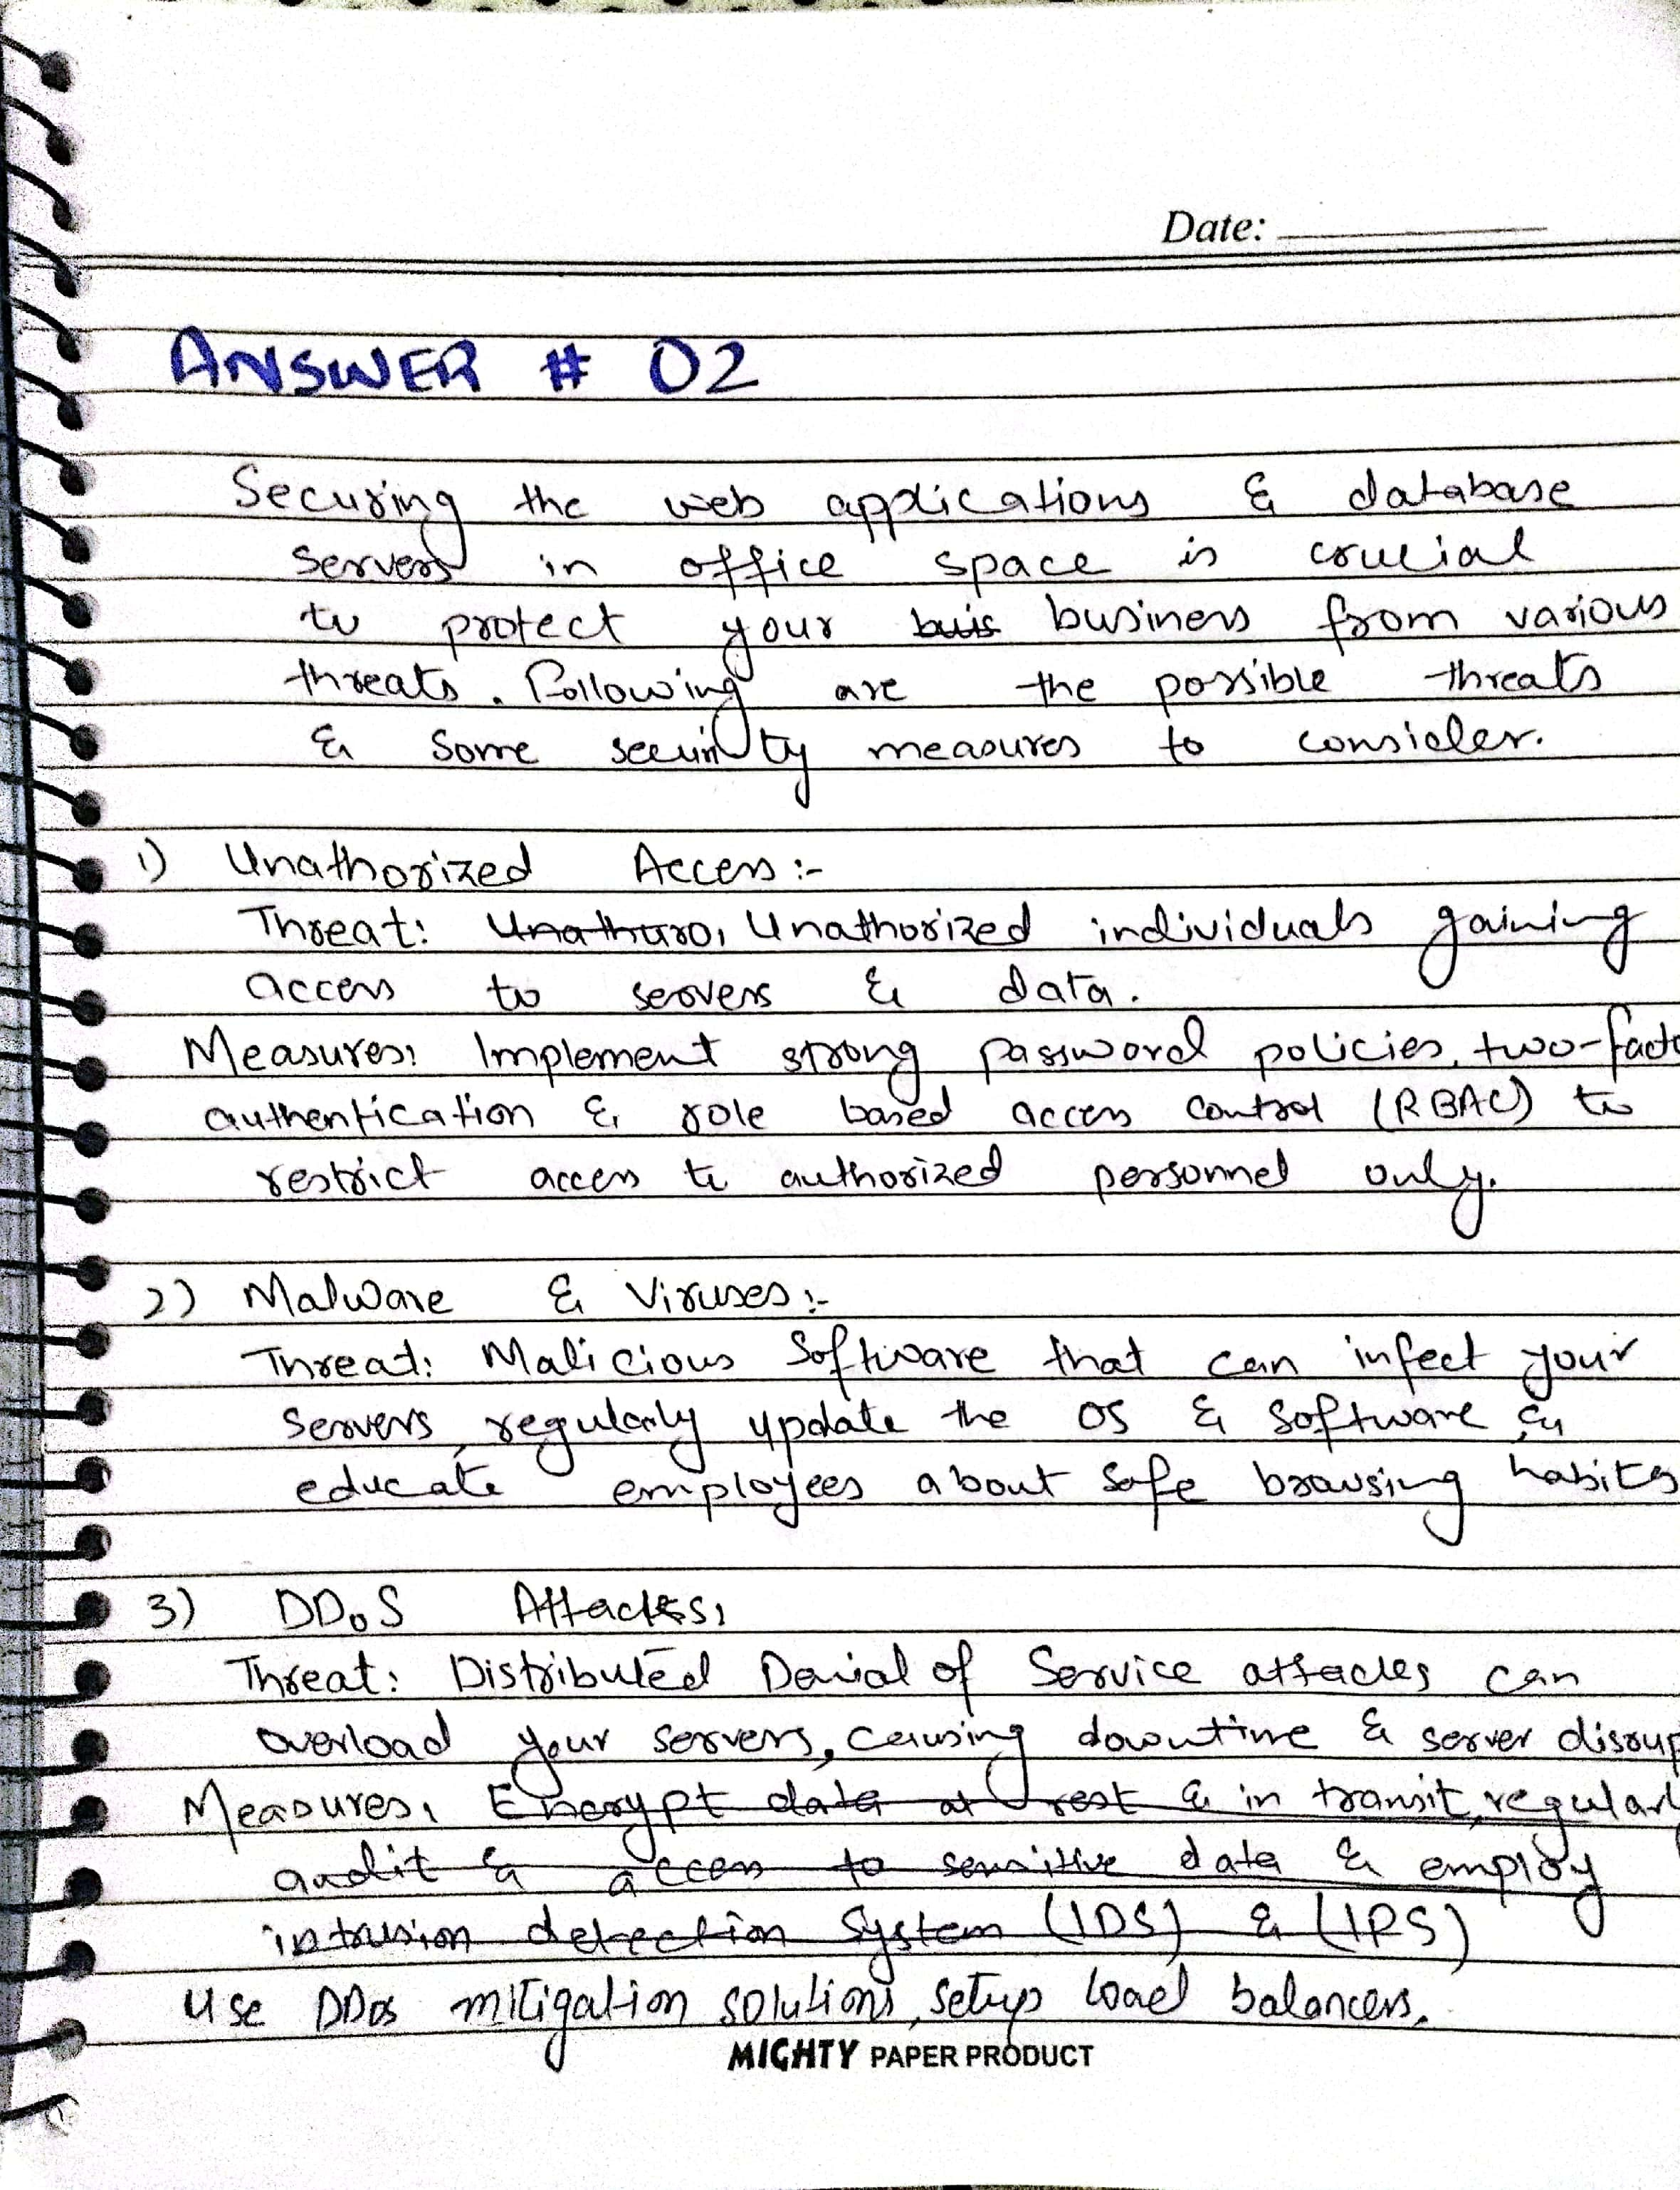 Date:
ANSWER # 02
Securing the web applications & database
servers in office space is crucial
to protect your buis business from various
threats. Following are the possible threats
& some security measures to consider.
1) Unathorized Access :-
Threat: Unathuro, Unathorized individuals gaining
access to servers & data.
Measures: Implement strong password policies, two-facto
authentication & role based access control (RBAC) to
restrict access to authorized personnel only.
2) Malware & Viruses :-
Threat: Malicious Software that can infect your
servers, regularly update the OS & software, &
educate employees about safe browsing habits
3) DDoS Attacks:
Threat: Distributed Denial of Service attacks can
overload your servers, causing downtime & server disrup
Measures: Encrypt data at rest & in transit, regularl
audit & access to sensitive data & employ
intrusion detection System (IDS) & (IPS)
Use DDos mitigation solutions, setup load balancers.
MIGHTY PAPER PRODUCT